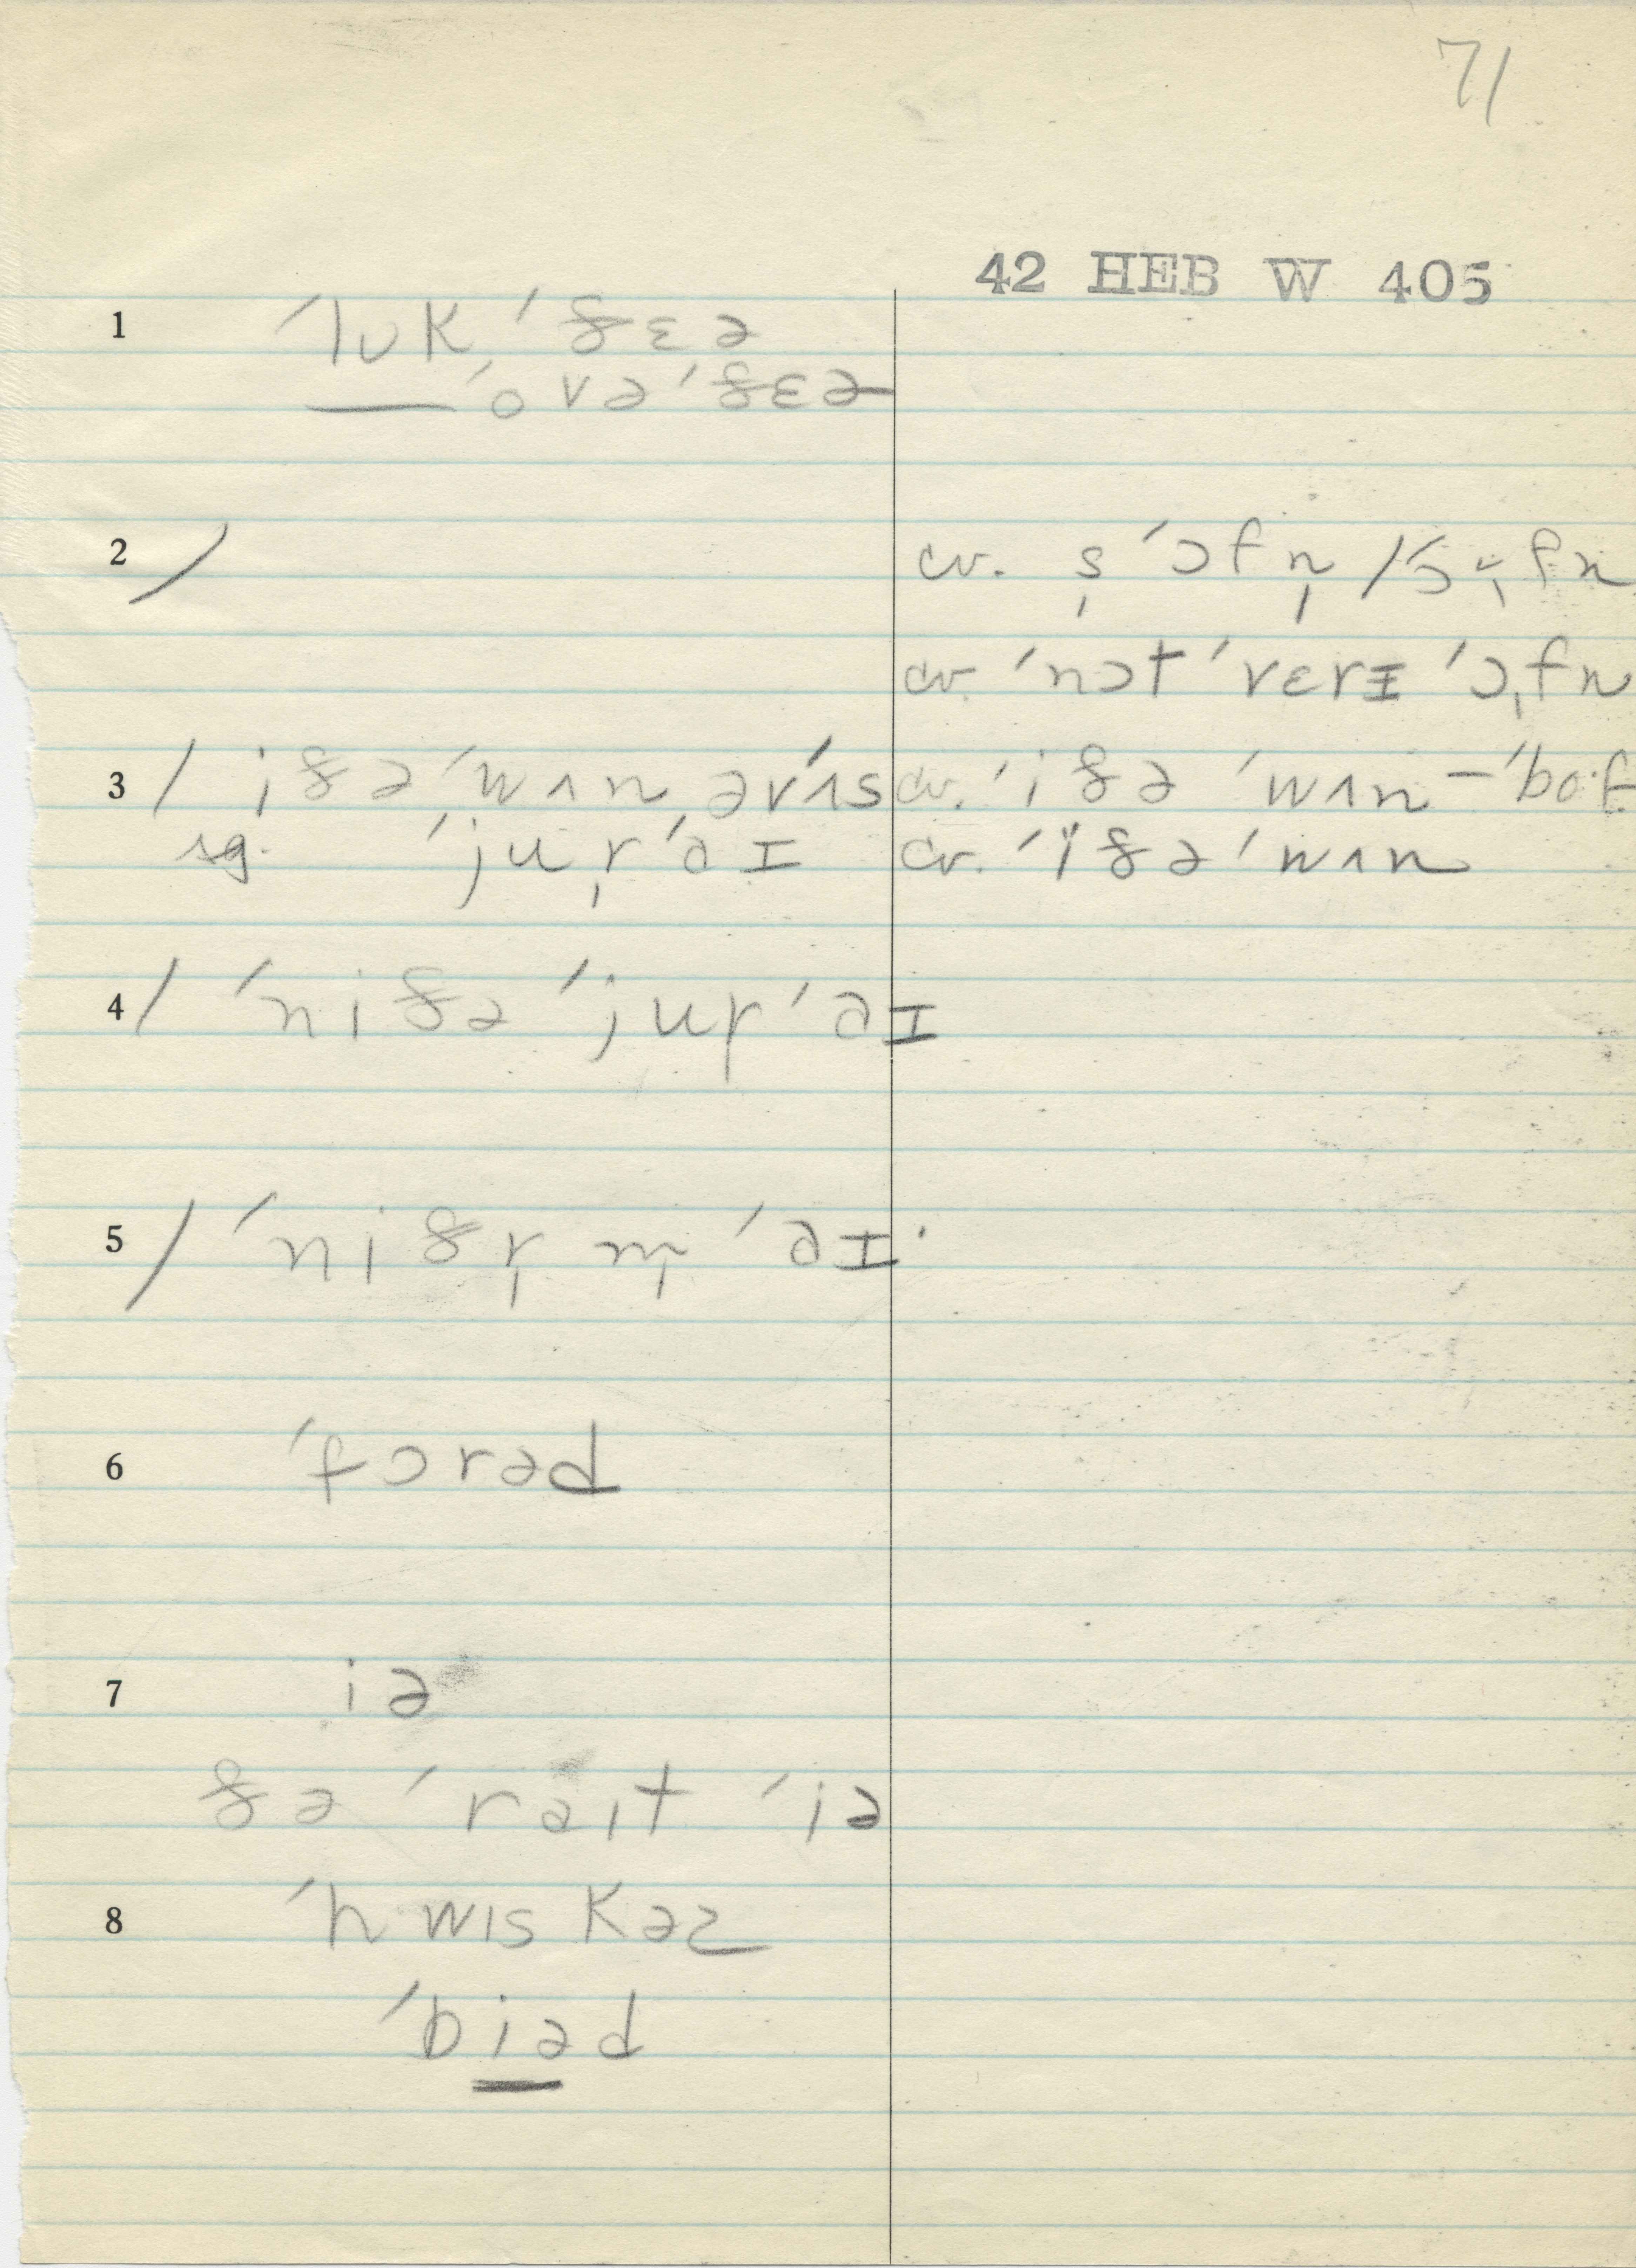 71
42 HEB W 405
1 ˈlʊk ˈðɛə
— ˈovə ˈðɛə
2 / cv. s̩ ˈɔfn̩ /
cv. ˈnɔt ˈvɛrɪ ˈɔ̩fn
3 / iðə ˈwʌn ərˈʌs cv. ˈiðə ˈwʌn – ˈboːf
sg. ˈjur̩ ˈəɪ cv. ˈiðə ˈwʌn
4 / ˈniðə ˈjur̩ ˈəɪ
5 / ˈniðr̩ m̩ ˈəɪ
6 ˈfɔrəd
7 iə
ðə ˈrəɪt ˈiə
8 ˈhwɪskəz
ˈbiəd